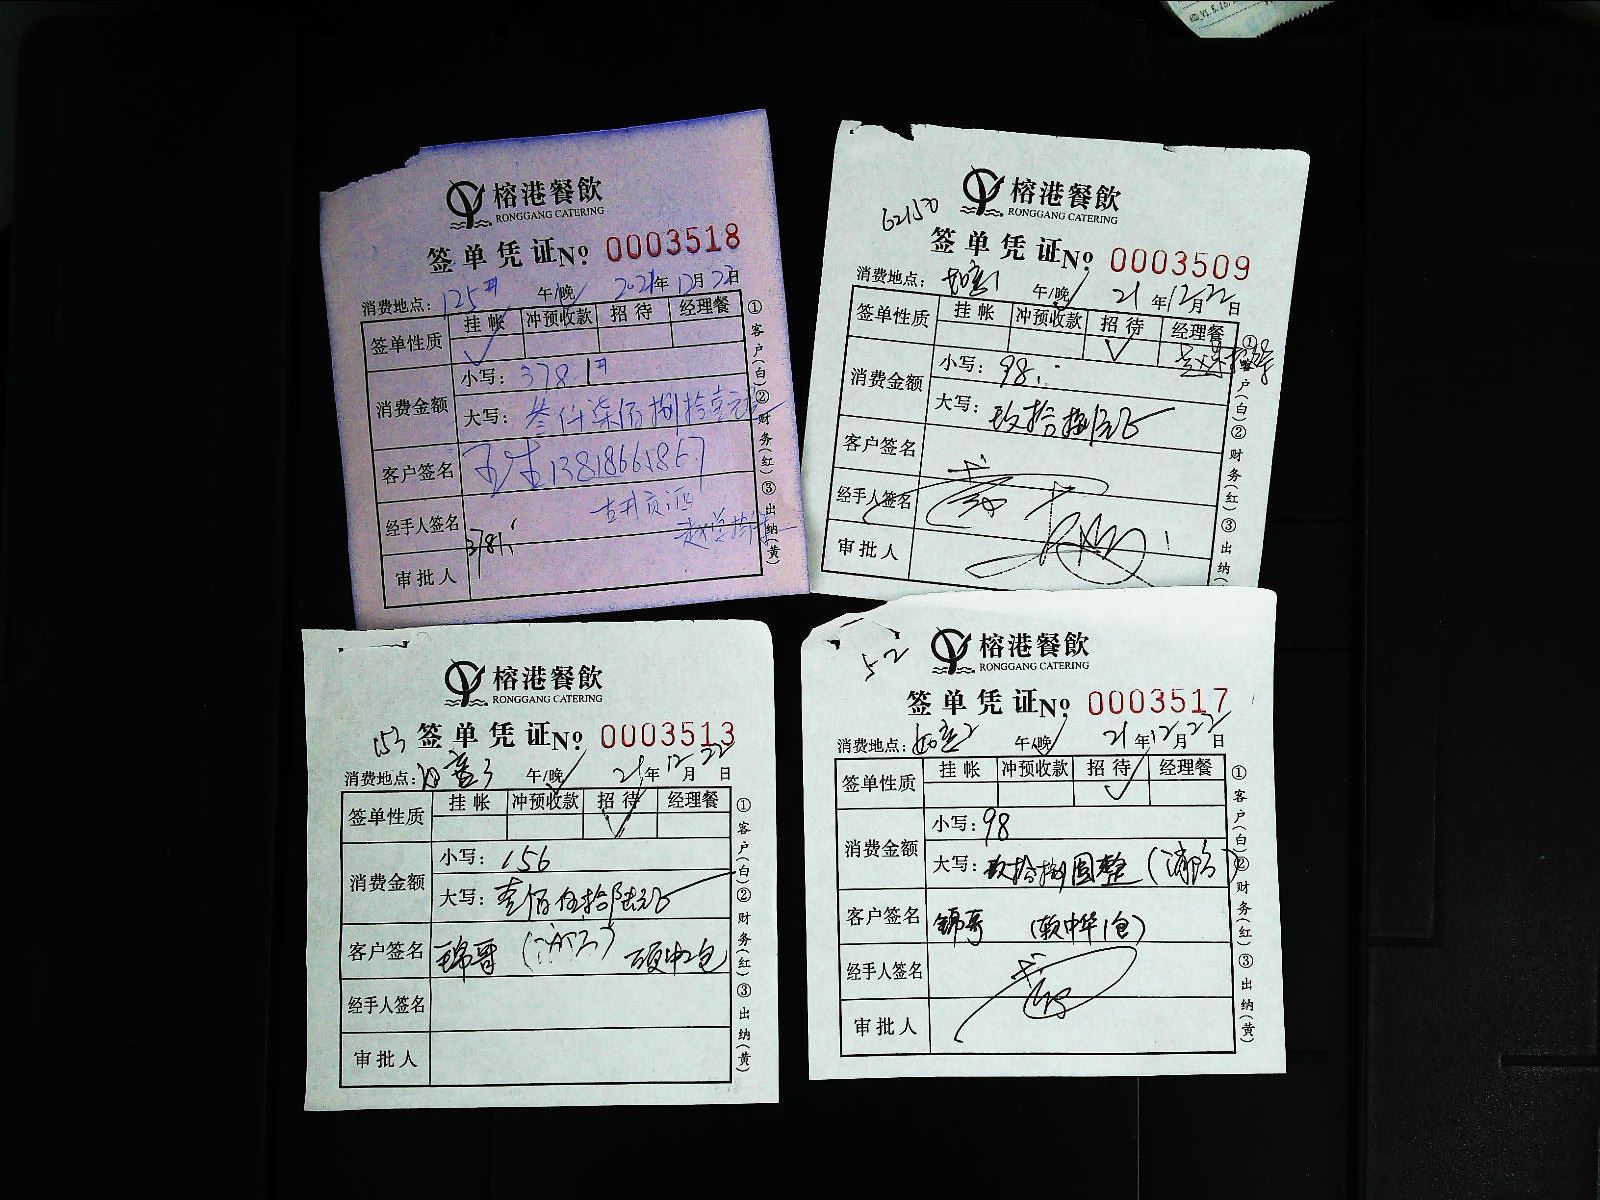 榕港餐飲
RONGGANG CATERING
签单凭证№ 0003518
消费地点: 午/晚 2021年12月22日
签单性质 挂帐 冲预收款 招待 经理餐
消费金额
小写: 3781元
大写: 叁仟柒佰捌拾壹元
客户签名
经手人签名
审批人
3781
①客户(白)②财务(红)③出纳(黄)
榕港餐飲
RONGGANG CATERING
签单凭证№ 0003509
消费地点: 午/晚 21年12月22日
签单性质 挂帐 冲预收款 招待 经理餐
消费金额
小写: 98
大写: 玖拾捌元正
客户签名
经手人签名
审批人
①客户(白)②财务(红)③出纳
榕港餐飲
RONGGANG CATERING
153 签单凭证№ 0003513
消费地点: 午/晚 21年12月22日
签单性质 挂帐 冲预收款 招待 经理餐
消费金额
小写: 156
大写: 壹佰伍拾陆元正
客户签名 锦哥
经手人签名
审批人
①客户(白)②财务(红)③出纳(黄)
52
榕港餐飲
RONGGANG CATERING
签单凭证№ 0003517
消费地点: 午/晚 21年12月22日
签单性质 挂帐 冲预收款 招待 经理餐
消费金额
小写: 98
大写: 玖拾捌圆整
客户签名 锦哥 (软中华1包)
经手人签名
审批人
①客户(白)②财务(红)③出纳(黄)